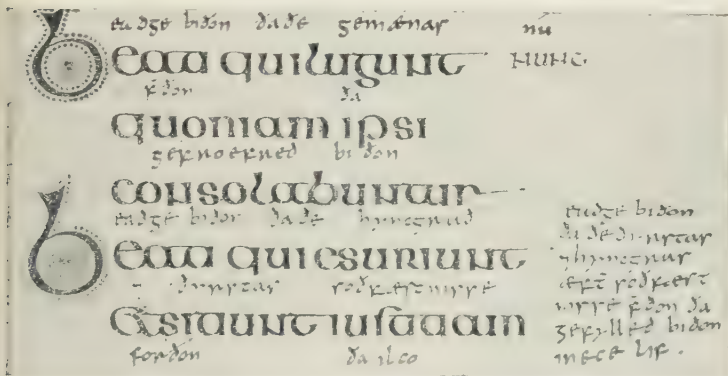 eadge biðon ðaðe gemænas nu
Beati qui lugunt nunc
fðon ða
quoniam ipsi
gefroefred biðon
consolabuntur
eadge biðon ðaðe hyncgrað
Beati qui esuriunt
⁊ ðyrstas soðfæstnisse
et sitiunt iustitiam
forðon ða ilco
eadge biðon
ða ðe ðyrstas
⁊ hyncgras
æft soðfæst
nisse fðon ða
gefylled biðon
in ece lif.